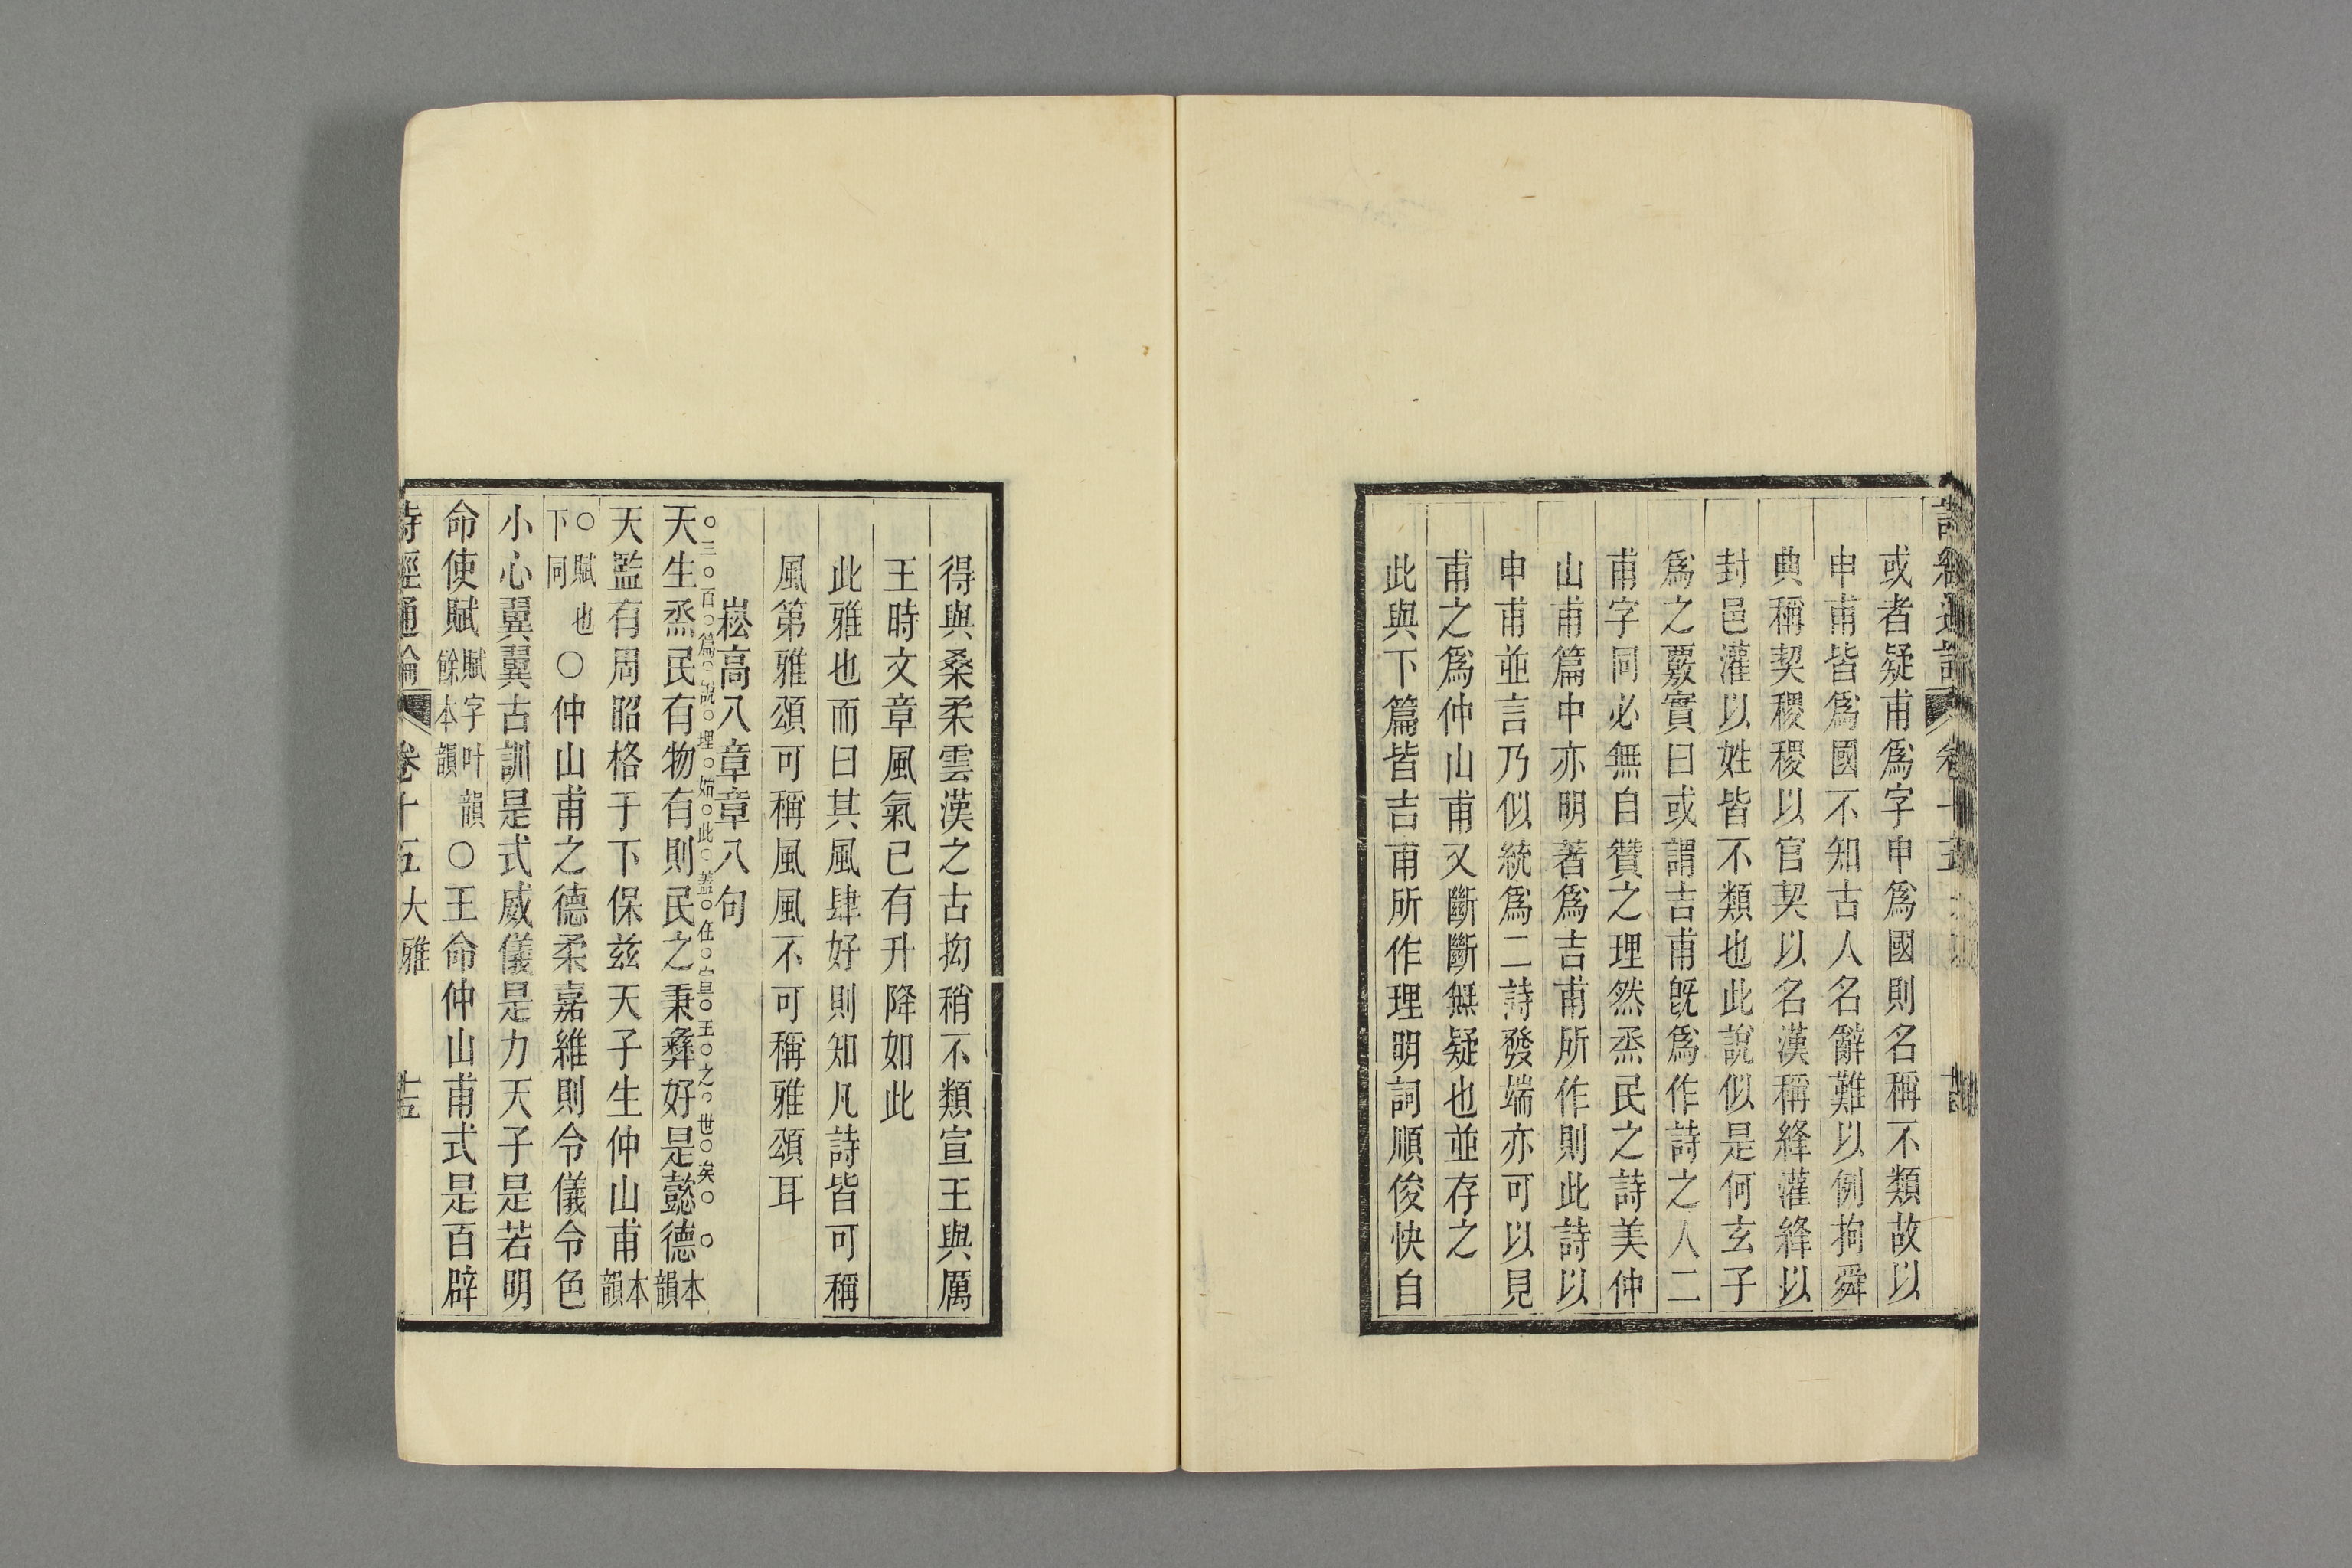 或者疑甫爲字申爲國則名稱不類故以
申甫皆爲國不知古人名辭難以例拘舜
典稱契稷稷以官契以名漢稱絳灌絳以
封邑灌以姓皆不類也此說似是何玄子
爲之覈實曰或謂吉甫旣爲作詩之人二
甫字同必無自贊之理然烝民之詩美仲
山甫篇中亦明著爲吉甫所作則此詩以
申甫並言乃似統爲二詩發端亦可以見
甫之爲仲山甫又斷斷無疑也並存之
此與下篇皆吉甫所作理明詞順俊快自
得與桑柔雲漢之古拗稍不類宣王與厲
王時文章風氣已有升降如此
此雅也而曰其風肆好則知凡詩皆可稱
風第雅頌可稱風風不可稱雅頌耳
崧高八章章八句
三百篇說理始此蓋在宣王之世矣
天生烝民有物有則民之秉彝好是懿德本韻
天監有周昭格于下保兹天子生仲山甫本韻
○賦也下同○仲山甫之德柔嘉維則令儀令色
小心翼翼古訓是式威儀是力天子是若明
命使賦賦字叶韻餘本韻○王命仲山甫式是百辟
詩經通論 卷十五 大雅